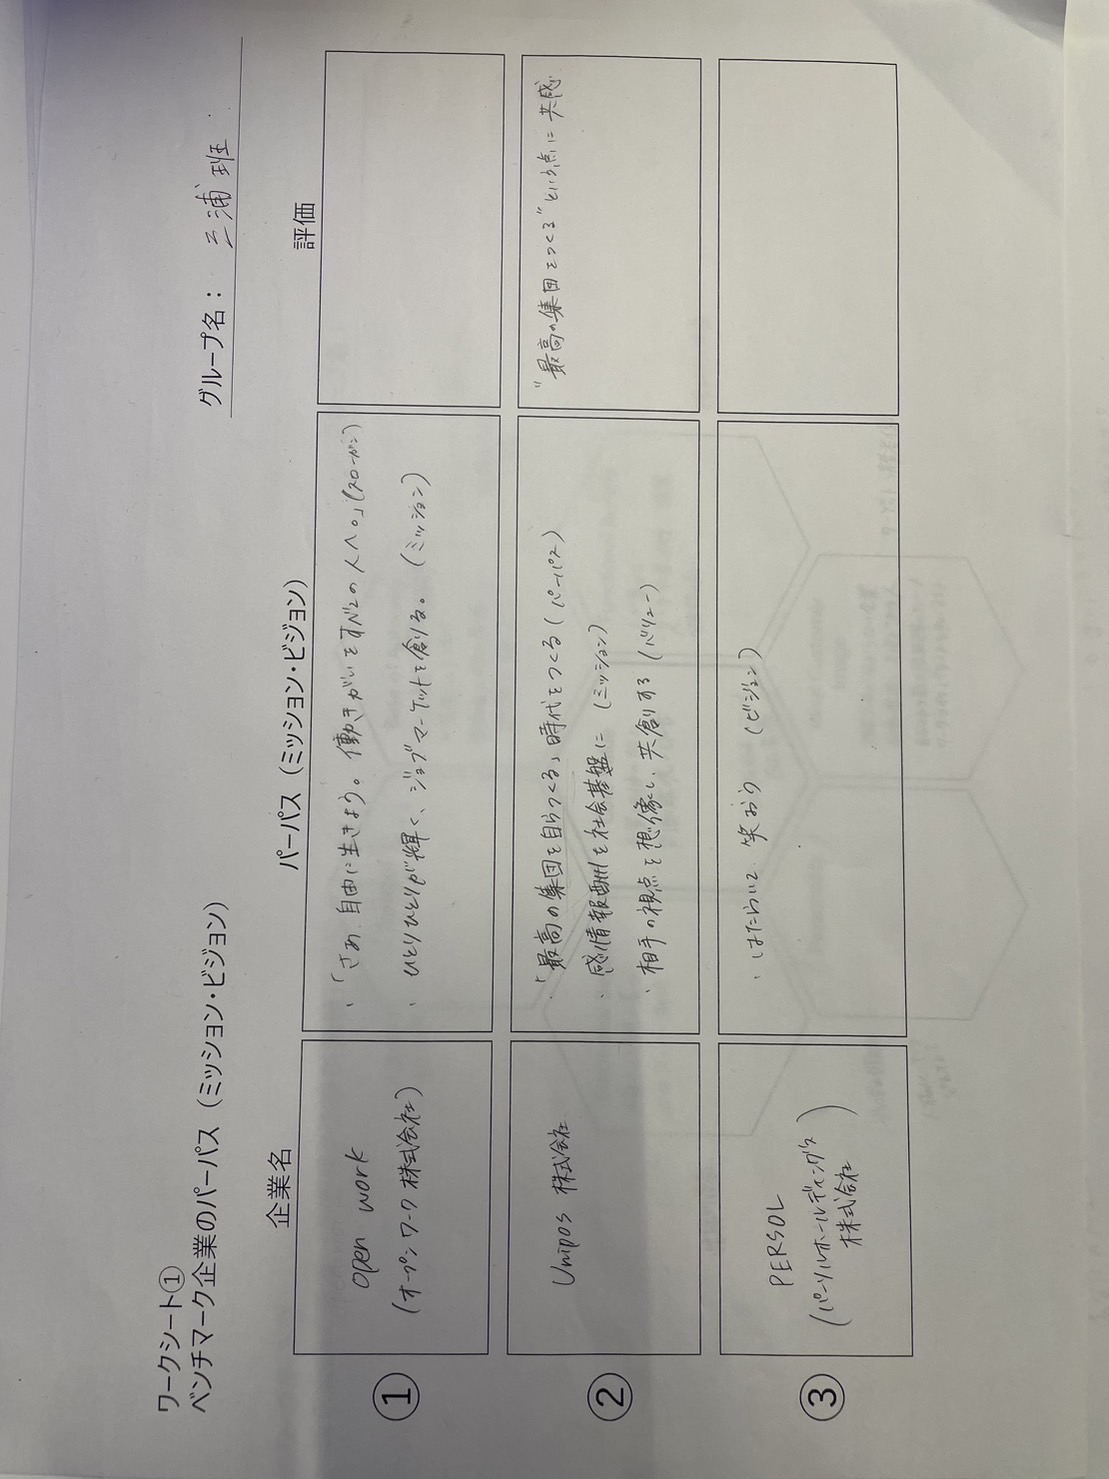 ワークシート①
ベンチマーク企業のパーパス（ミッション・ビジョン）
グループ名： 三浦班
企業名
パーパス（ミッション・ビジョン）
評価
①
open work
（オープンワーク 株式会社）
・「さあ、自由に生きよう。働きがいをすべての人へ。」（スローガン）
・ひとりひとりが輝く、ジョブマーケットを創る。（ミッション）
②
Unipos 株式会社
・「最高の集団を自らつくる」時代をつくる（パーパス）
・感情報酬を社会基盤に（ミッション）
・相手の視点を想像し、共創する（バリュー）
"最高の集団をつくる"という点に共感
③
PERSOL
（パーソルホールディングス
株式会社）
・はたらいて、笑おう （ビジョン）